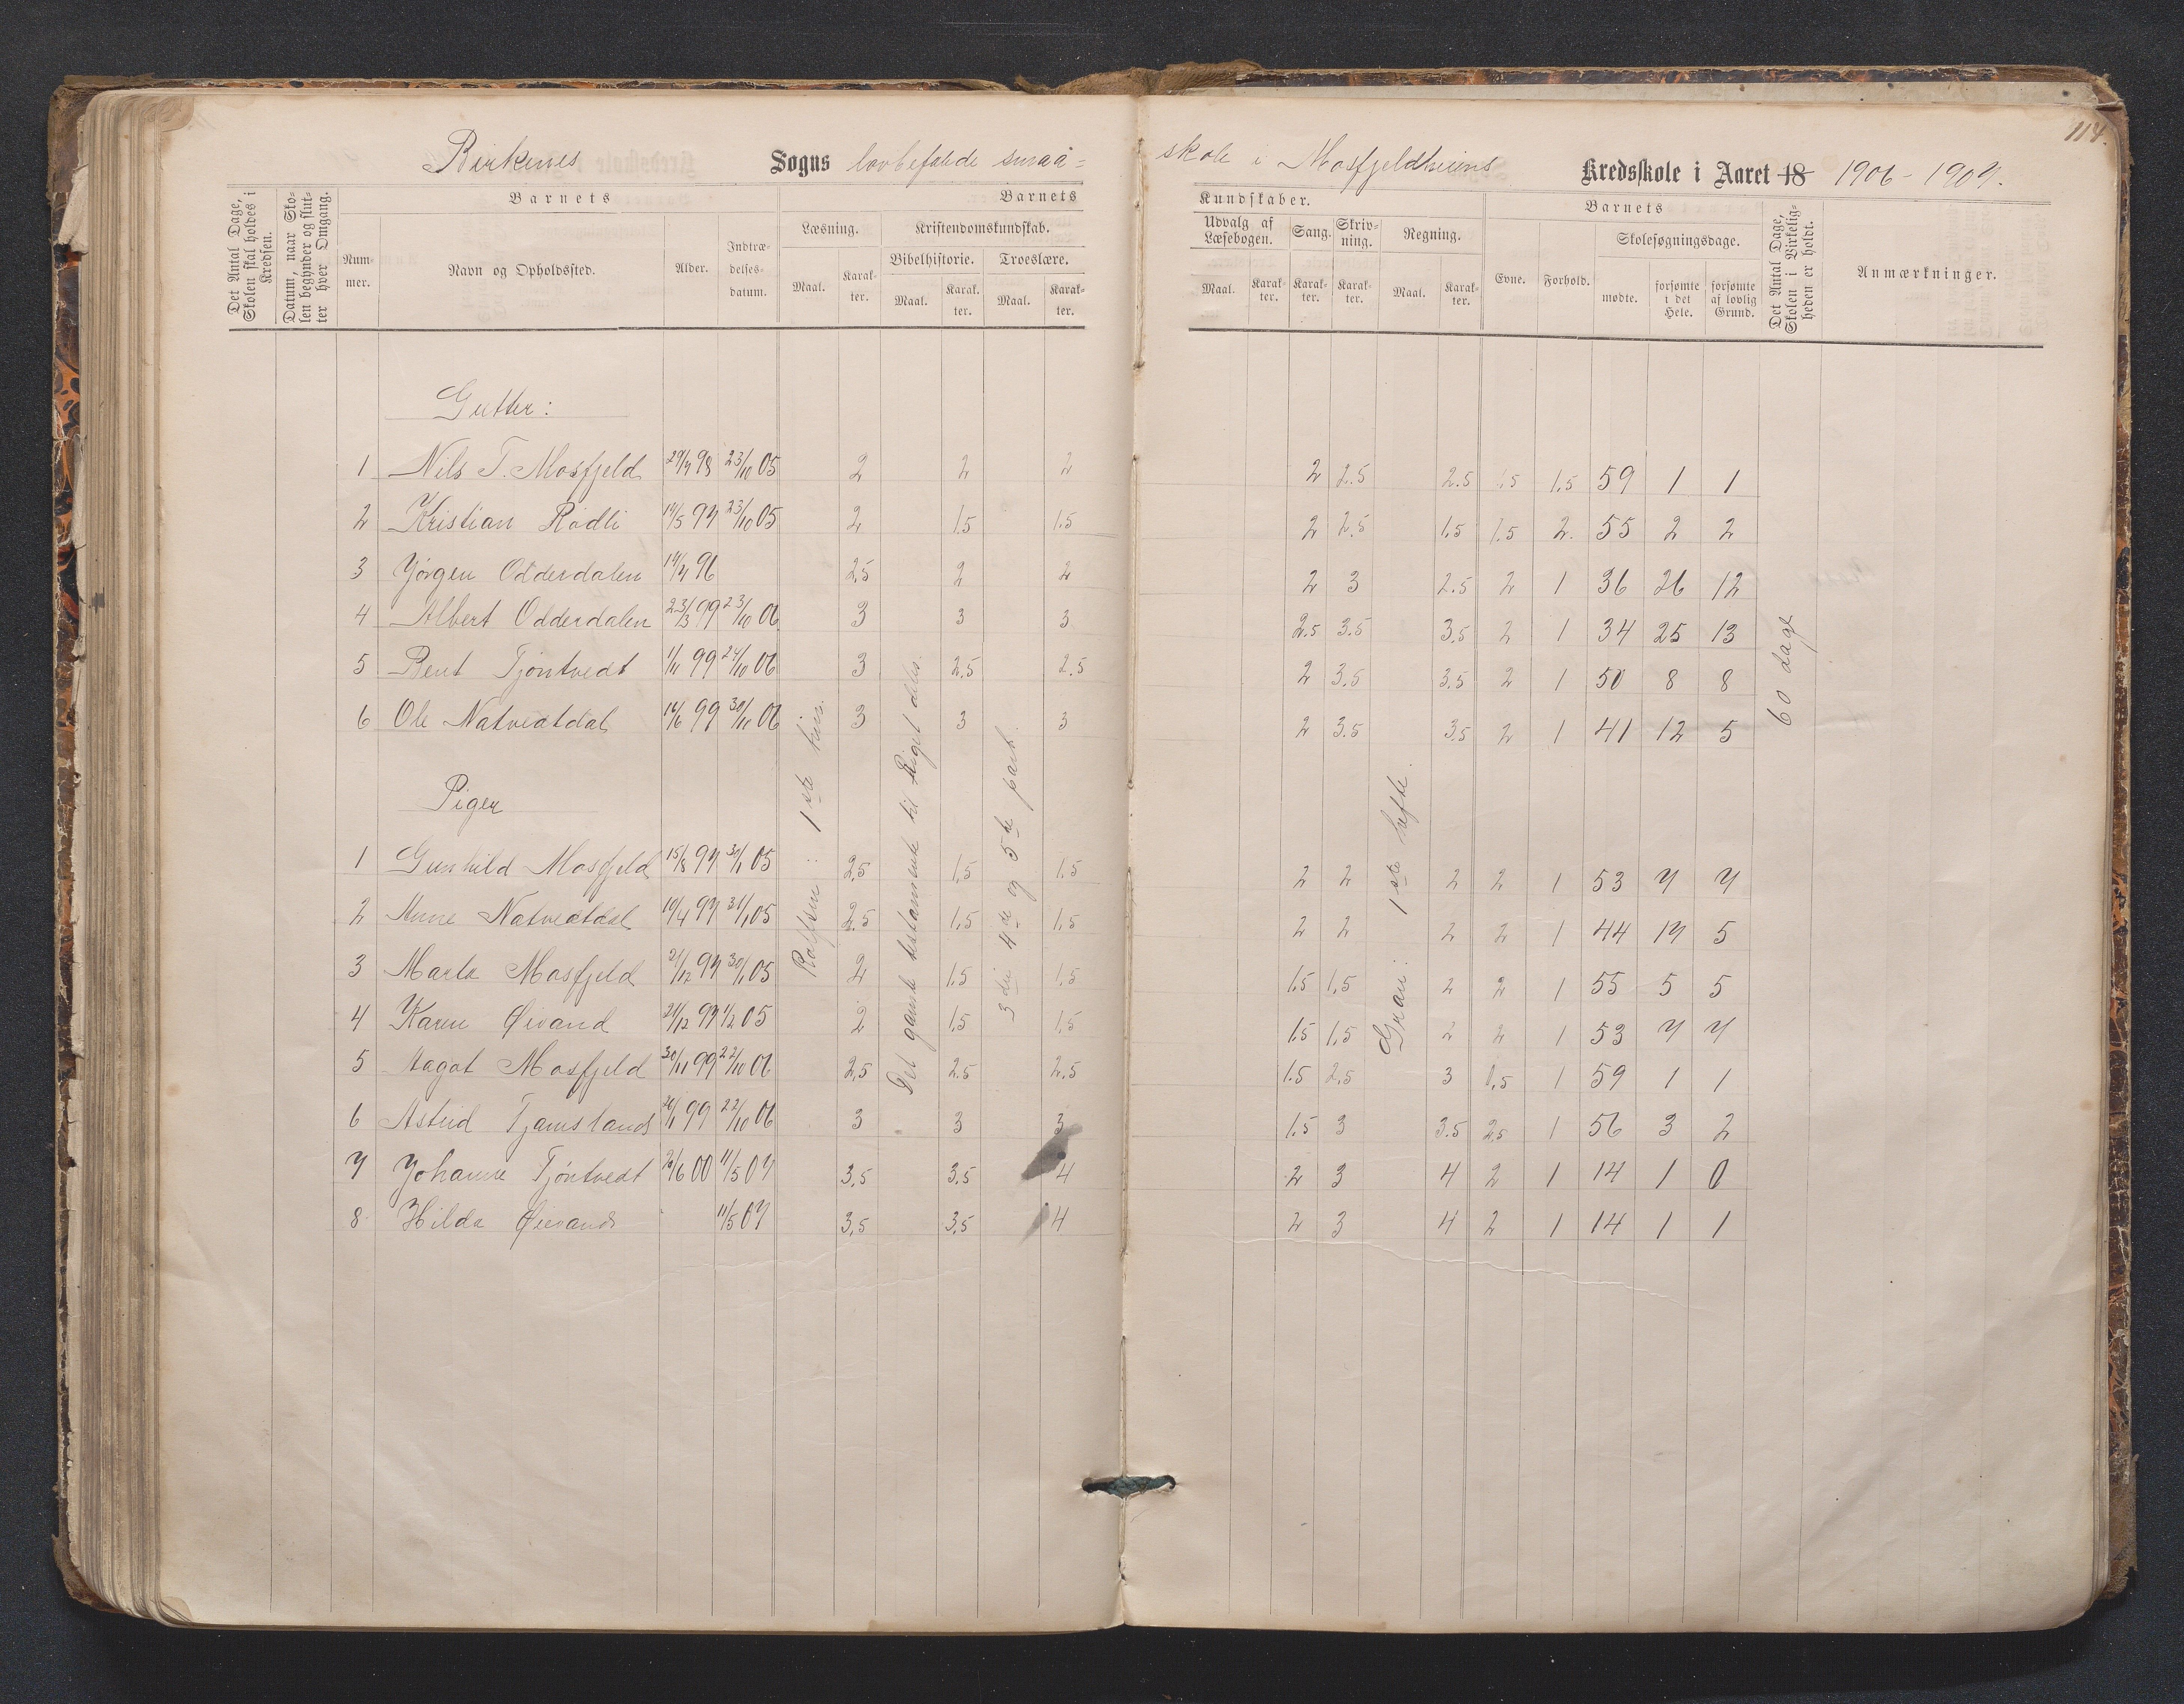 114.
Birkenes Sogns lovbefalede smaa=
skole i Mosfjeldheiens Kredsskole i Aaret 18 1906-1907.
Det Antal Dage, Skolen skal holdes i Kredsen.
Datum, naar Skolen begynder og slutter hver Omgang.
Barnets
Nummer.
Navn og Opholdssted.
Alder.
Indtrædelsesdatum.
Barnets
Læsning.
Maal.
Karakter.
Kristendomskundskab.
Bibelhistorie.
Maal.
Karakter.
Troeslære.
Maal.
Karakter.
Kundskaber.
Udvalg af Læsebogen.
Maal.
Karakter.
Sang.
Karakter.
Skrivning.
Karakter.
Regning.
Maal.
Karakter.
Barnets
Evne.
Forhold.
Skolesøgningsdage.
mødte.
forsømte i det Hele.
forsømte af lovlig Grund.
Det Antal Dage, Skolen i Virkeligheden er holdt.
Anmærkninger.
Gutter:
1 Nils T. Mosfjeld 29/7 98 23/10 05 2 2 2 2 2.5 2.5 1.5 1.5 59 1 1
2 Kristian Rødli 14/5 97 23/10 05 2 1.5 1.5 2 2.5 1.5 1.5 2. 55 2 2
3 Jørgen Odderdalen 14/7 96 2.5 2 2 2 3 2.5 2 1 36 26 12
4 Albert Odderdalen 23/3 99 23/10 06 3 3 3 2.5 3.5 3.5 2 1 34 25 13
5 Bent Tjøntvedt 1/11 99 24/10 06 3 2.5 2.5 2 3.5 3.5 2 1 50 8 8
6 Ole Natvedtdal 16/6 99 30/11 06 3 3 3 2 3.5 3.5 2 1 41 12 5
Piger
1 Gunhild Mosfjeld 15/8 97 31/1 05 2,5 1,5 1,5 2 2 2 2 1 53 7 7
2 Anne Natvedtdal 10/4 97 31/1 05 2.5 1,5 1,5 2 2 2 2 1 44 17 5
3 Marta Mosfjeld 21/12 97 30/1 05 2 1.5 1,5 1.5 1,5 2 2 1 55 5 5
4 Karen Øivand 21/12 97 1/2 05 2 1.5 1,5 1.5 1,5 2 2 1 53 7 7
5 Aagot Mosfjeld 30/11 99 22/10 06 2,5 2.5 2.5 1.5 2,5 3 1,5 1 59 1 1
6 Astrid Tjamslands 20/1 99 22/10 06 3 3 3 1.5 3 3.5 2,5 1 56 3 2
7 Johanne Tjøntvedt 26/6 00 11/5 07 3,5 3.5 4 2 3 4 2 1 14 1 0
8 Hilda Øievands 11/5 07 3,5 3,5 4 2 3 4 2 1 14 1 1
Rolfsen: 1ste
Det gamle testamente til Riget deles.
3die 4de og 5te part.
Gran: 1ste hefte.
60 dage